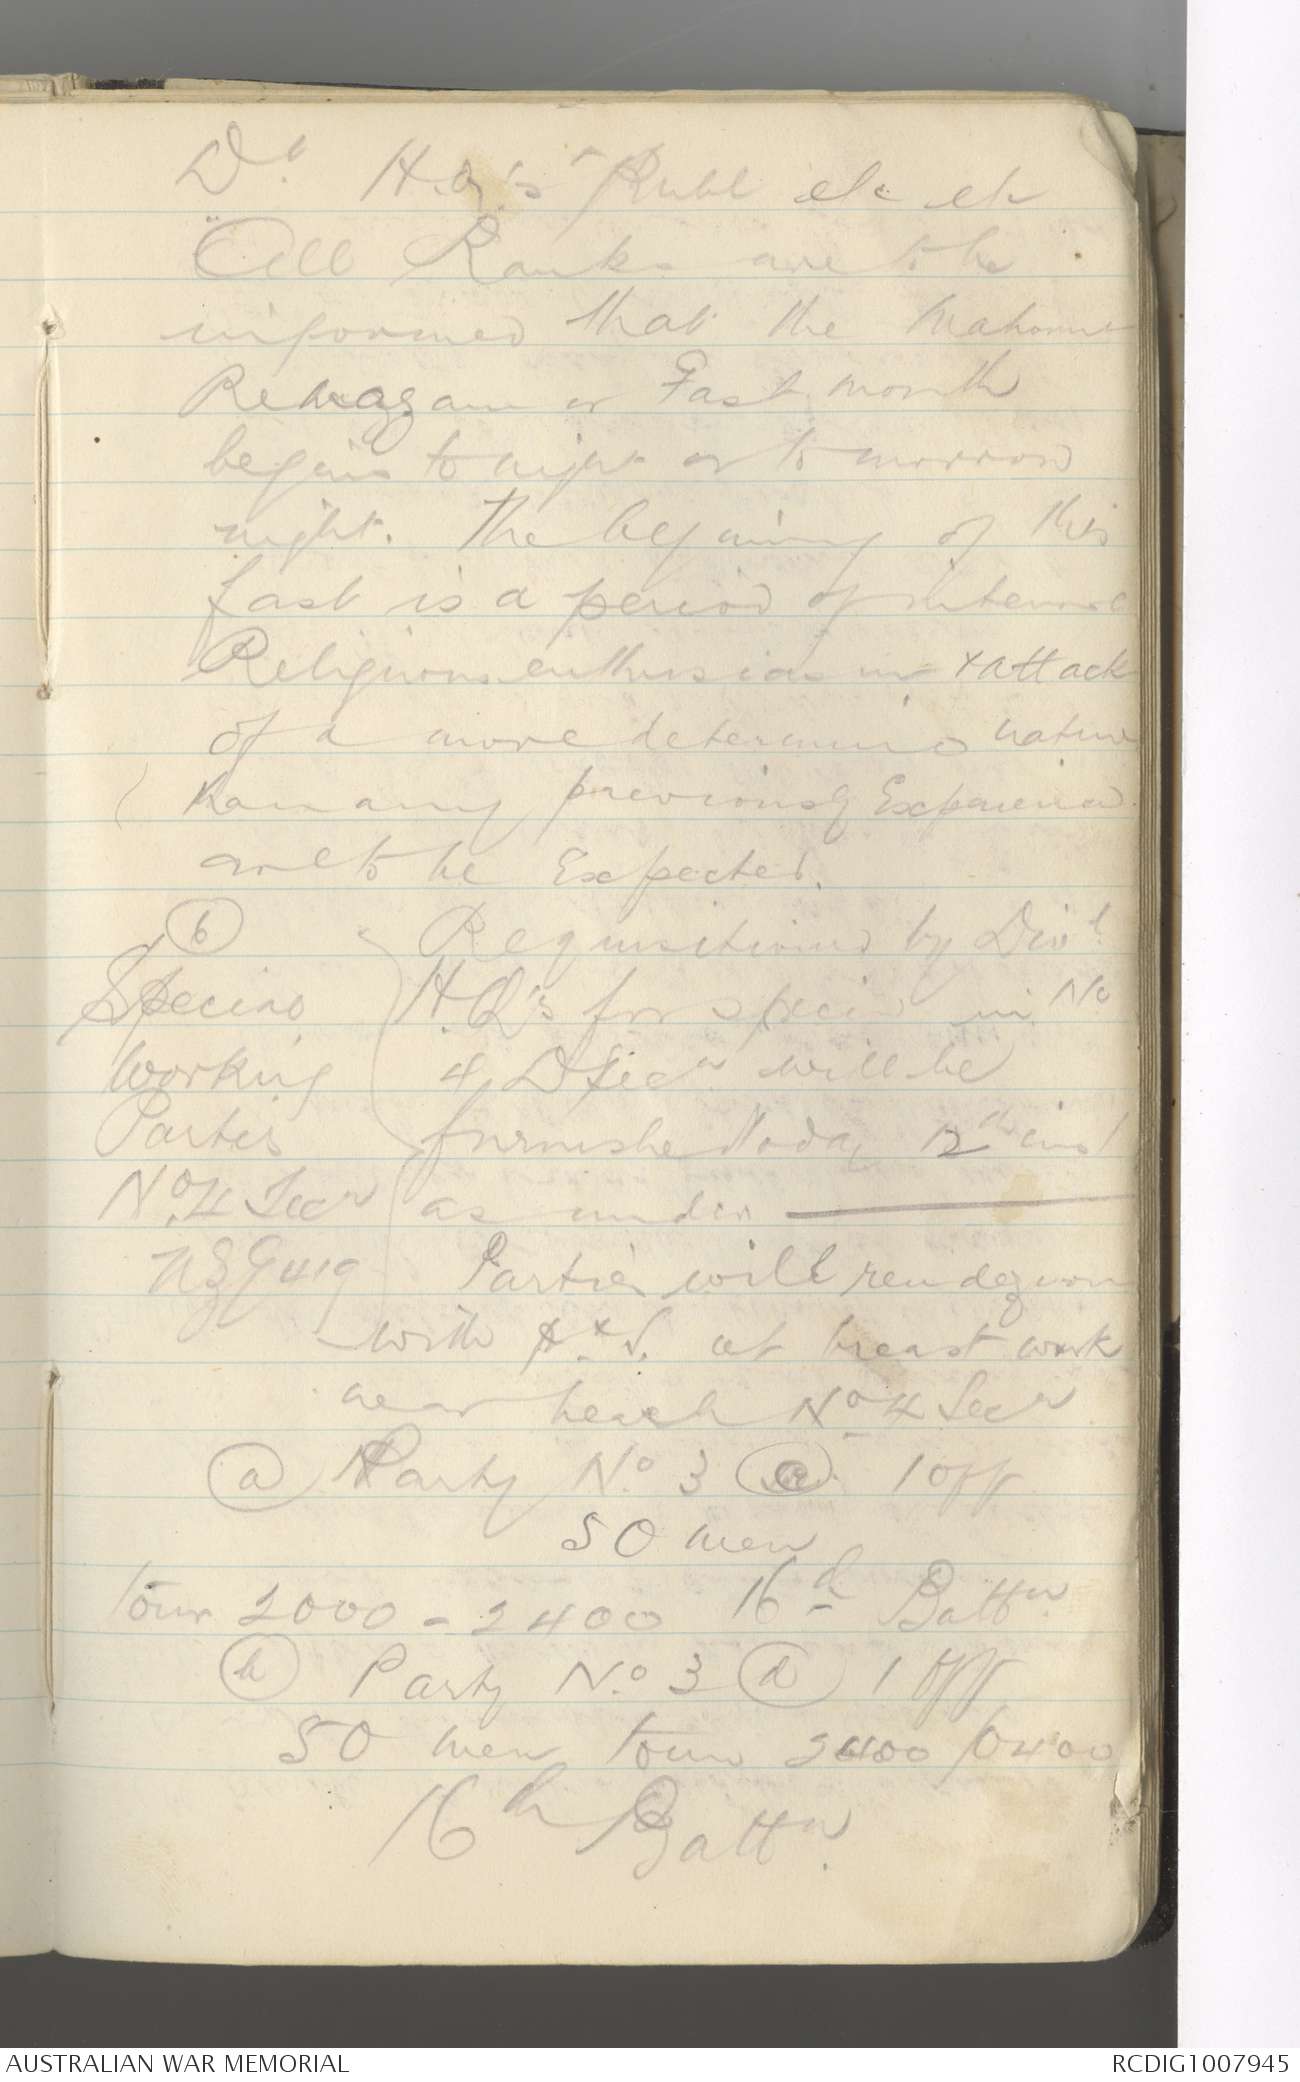 Dl. H.Q's Publ etc etc
"All Ranks are to be
informed that the Mahomet
Remazam or Fast month
begins to night or to morrow
night. The begining of this
fast is a period of intense
Religious enthusiasm & attack
of a more determined nature
than any previously Experienced
are to be Expected.
(6) Requisitions by Divl.
Special H.Q's for special in No
Working 4 D Secn will be
Parties furnished today 12th inst
No. 4 Secn as under
NZG 419 Parties will rendezvous
with at breast work
near beach No 4 Secn
(a) Party No. 3 1 off
50 men
Tour 2000 - 2400 16th Battn.
(b) Party No. 3 (d) 1 Off
50 men tour 2400 / 0400
16th Battn.
AUSTRALIAN WAR MEMORIAL
RCDIG1007945